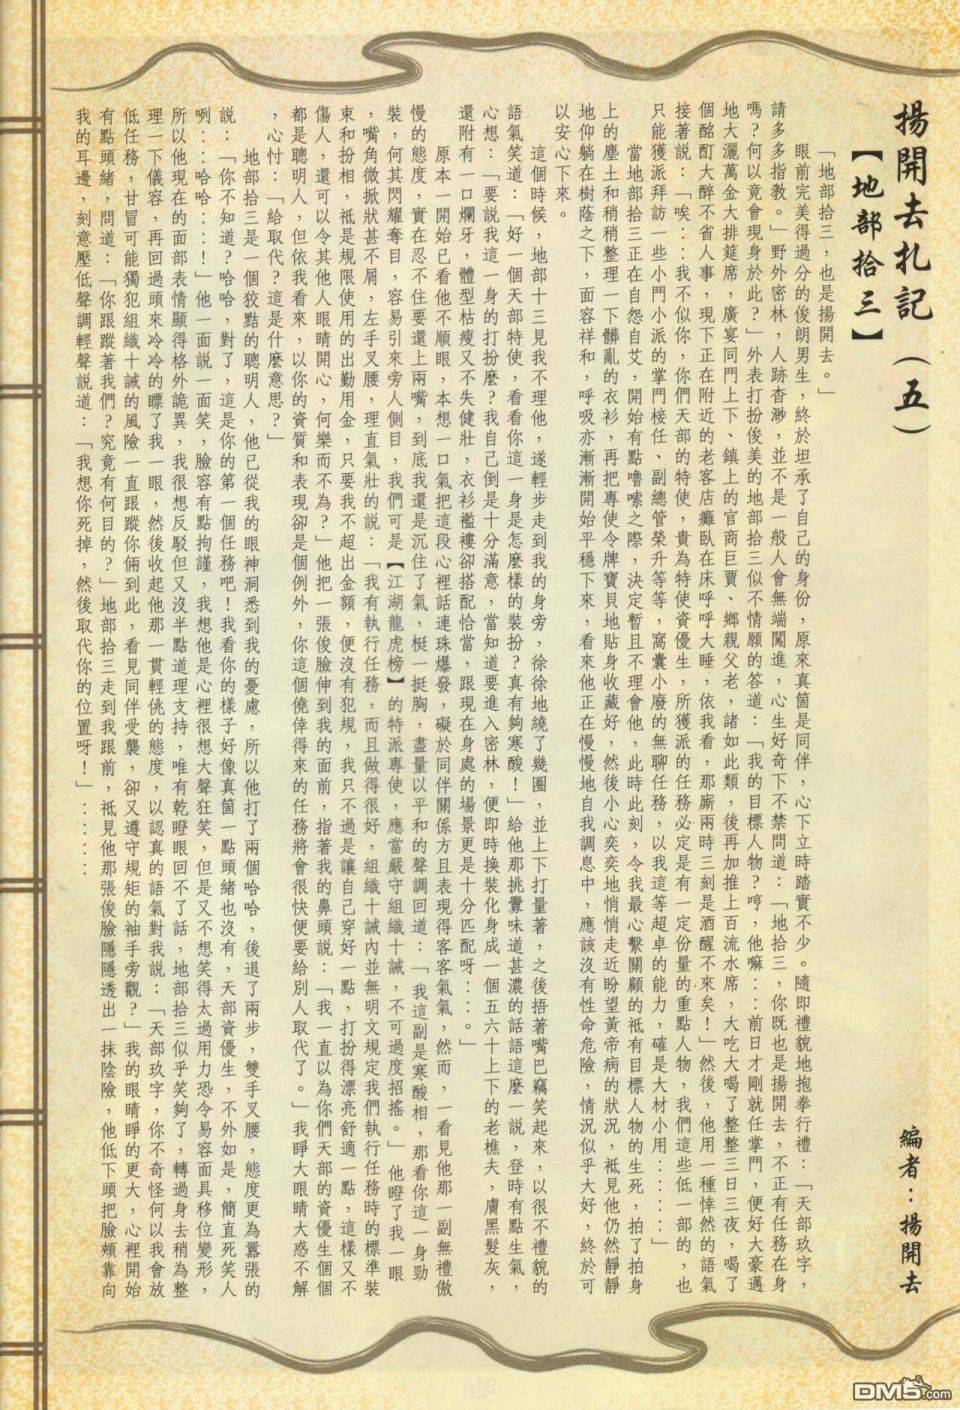 揚開去札記（五）
編者：揚開去
【地部拾三】
「地部拾三，也是揚開去。」
眼前完美得過分的俊朗男生，終於坦承了自己的身份，原來真箇是同伴，心下立時踏實不少。隨即禮貌地抱拳行禮：「天部玖字，
請多多指教。」野外密林，人跡杳渺，並不是一般人會無端闖進，心生好奇下不禁問道：「地拾三，你既也是揚開去，不正有任務在身
嗎？何以竟會現身於此？」外表打扮俊美的地部拾三似不情願的答道：「我的目標人物？哼，他嘛：：前日才剛就任掌門，便好大豪邁
地大灑萬金大排筵席，廣宴同門上下、鎮上的官商巨賈、鄉親父老，諸如此類，後再加推上百流水席，大吃大喝了整整三日三夜，喝了
個酩酊大醉不省人事，現下正在附近的老客店癱臥在床呼呼大睡，依我看，那廝兩時三刻是酒醒不來矣！」然後，他用一種悻然的語氣
接著說：「唉：：我不似你，你們天部的特使，貴為特使資優生，所獲派的任務必定是有一定份量的重點人物，我們這些低一部的，也
只能獲派拜訪一些小門小派的掌門接任、副總管榮升等等，窩囊小廢的無聊任務，以我這等超卓的能力，確是大材小用：：：：」
當地部拾三正在自怨自艾，開始有點嚕嗦之際，決定暫且不理會他，此時此刻，令我最心繫關顧的祗有目標人物的生死，拍了拍身
上的塵土和稍稍整理一下髒亂的衣衫，再把專使令牌寶貝地貼身收藏好，然後小心奕奕地悄悄走近盼望黃帝病的狀況，祗見他仍然靜靜
地仰躺在樹蔭之下，面容祥和，呼吸亦漸漸開始平穩下來，看來他正在慢慢地自我調息中，應該沒有性命危險，情況似乎大好，終於可
以安心下來。
這個時候，地部十三見我不理他，遂輕步走到我的身旁，徐徐地繞了幾圈，並上下打量著，之後捂著嘴巴竊笑起來，以很不禮貌的
語氣笑道：「好一個天部特使，看看你這一身是怎麼樣的裝扮？真有夠寒酸！」給他那挑釁味道甚濃的話語這麼一說，登時有點生氣，
心想：「要說我這一身的打扮麼？我自己倒是十分滿意，當知道要進入密林，便即時換裝化身成一個五六十上下的老樵夫，膚黑髮灰，
還附有一口爛牙，體型枯瘦又不失健壯，衣衫襤褸卻搭配恰當，跟現在身處的場景更是十分匹配呀：：。」
原本一開始已看他不順眼，本想一口氣把這段心裡話連珠爆發，礙於同伴關係方且表現得客客氣氣，然而，一看見他那一副無禮傲
慢的態度，實在忍不住要還上兩嘴，到底我還是沉住了氣，梃一挺胸，盡量以平和的聲調回道：「我這副是寒酸相，那看你這一身勁
裝，何其閃耀奪目，容易引來旁人側目，我們可是【江湖龍虎榜】的特派專使，應當嚴守組織十誡，不可過度招搖。」他瞪了我一眼
，嘴角微掀狀甚不屑，左手叉腰，理直氣壯的說：「我有執行任務，而且做得很好，組織十誡內並無明文規定我們執行任務時的標準裝
束和扮相，祗是規限使用的出勤用金，只要我不超出金額，便沒有犯規，我只不過是讓自己穿好一點，打扮得漂亮舒適一點，這樣又不
傷人，還可以令其他人眼睛開心，何樂而不為？」他把一張俊臉伸到我的面前，指著我的鼻頭說：「我一直以為你們天部的資優生個個
都是聰明人，但依我看來，以你的資質和表現卻是個例外，你這個僥倖得來的任務將會很快便要給別人取代了。」我睜大眼睛大惑不解
，心忖：「給取代？這是什麼意思？」
地部拾三是一個狡黠的聰明人，他已從我的眼神洞悉到我的憂慮，所以他打了兩個哈哈，後退了兩步，雙手叉腰，態度更為囂張的
說：「你不知道？哈哈，對了，這是你的第一個任務吧！我看你的樣子好像真箇一點頭緒也沒有，天部資優生，不外如是，簡直死笑人
咧：：哈哈：：！」他一面說一面笑，臉容有點拘謹，我想他是心裡很想大聲狂笑，但是又不想笑得太過用力恐令易容面具移位變形，
所以他現在的面部表情顯得格外詭異，我很想反駁但又沒半點道理支持，唯有乾瞪眼回不了話，地部拾三似乎笑夠了，轉過身去稍為整
理一下儀容，再回過頭來冷冷的瞟了我一眼，然後收起他那一貫輕佻的態度，以認真的語氣對我說：「天部玖字，你不奇怪何以我會放
低任務，甘冒可能獨犯組織十誡的風險一直跟蹤你倆到此，看見同伴受襲，卻又遵守規矩的袖手旁觀？」我的眼睛睜的更大，心裡開始
有點頭緒，問道：「你跟蹤著我們？究竟有何目的？」地部拾三走到我跟前，祗見他那張俊臉隱隱透出一抹陰險，他低下頭把臉頰靠向
我的耳邊，刻意壓低聲調輕聲說道：「我想你死掉，然後取代你的位置呀！」：：：：：
DM5.com